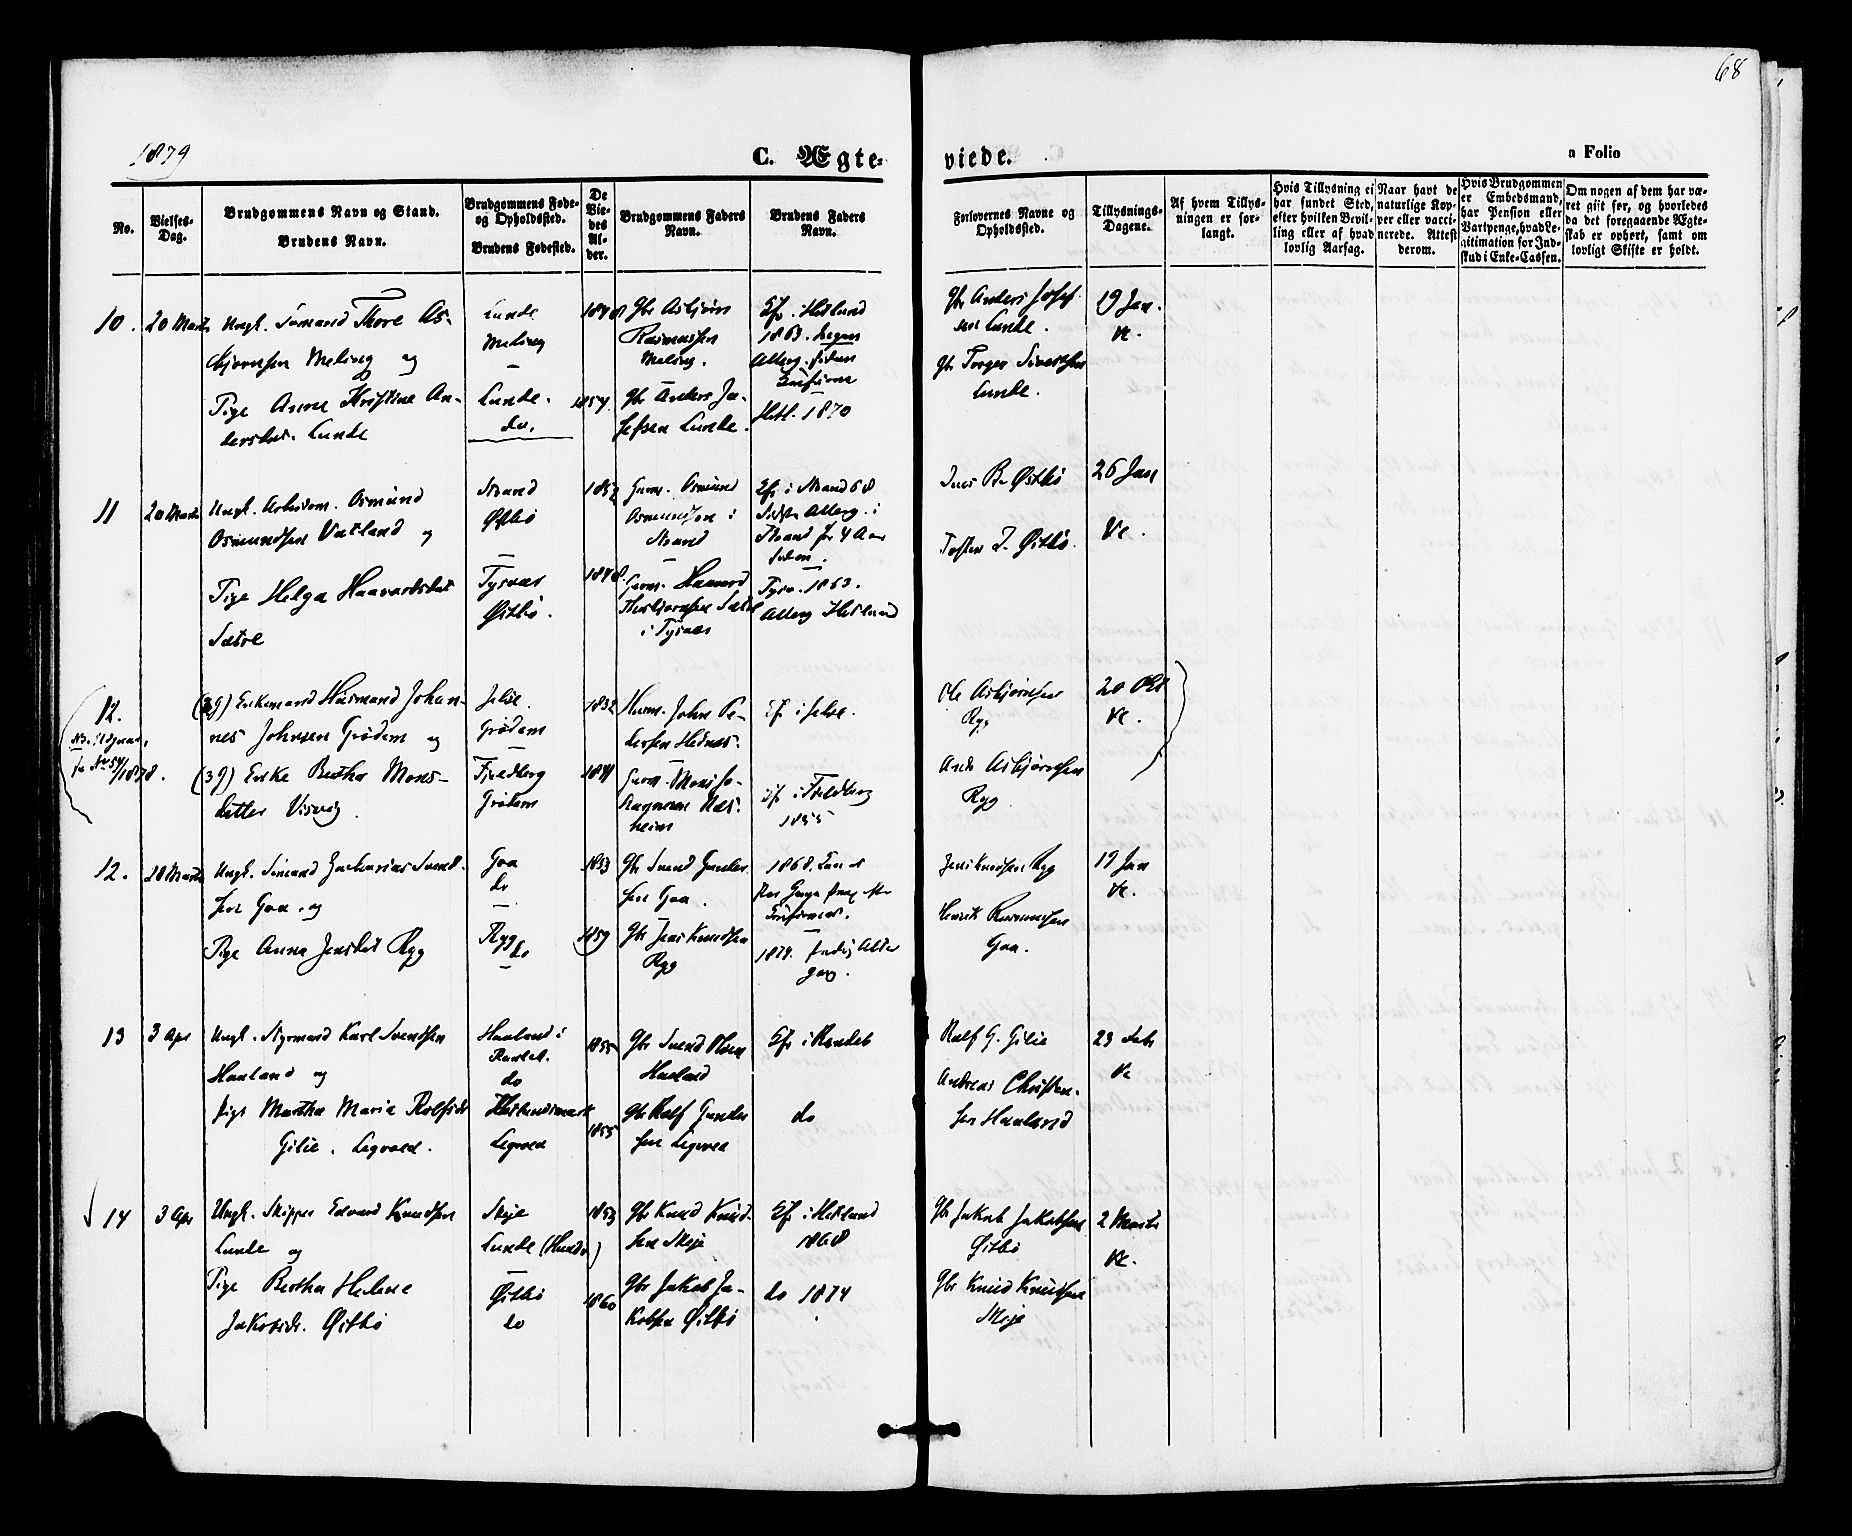 68
1879
C. Ægte-
viede.
a Folio
No.
Vielses-
Dag.
Brudgommens Navn og Stand.
Brudens Navn.
Brudgommens Føde-
og Opholdssted.
Brudens Fødested.
De
Vie-
des
Al-
der.
Brudgommens Faders
Navn.
Brudens Faders
Navn.
Forlovernes Navne og
Opholdssted.
Tillysnings-
Dagene.
Af hvem Tillys-
ningen er for-
langt.
Hvis Tillysning ei
har fundet Sted,
efter hvilken Bevil-
ling eller af hvad
lovlig Aarsag.
Naar havt de
naturlige Kop-
per eller vacci-
nerede. Attest
derom.
Hvis Brudgommen
er Embedsmand,
har Pension eller
Vartpenge, hvad Le-
gitimation for Ind-
skud i Enke-Cassen.
Om nogen af dem har væ-
ret gift før, og hvorledes
da det foregaaende Ægte-
skab er ophørt, samt om
lovligt Skifte er holdt.
10.
20 Marts
Ungk. Sømand Thore As-
bjørnsen Meling og
Pige Anne Kristine An-
dersdat. Lunde
Lunde
Meling
Lunde.
do.
1857.
Gbr Asbjørn
Rasmussen
Meling.
Gbr Anders Jo-
sefsen Lunde.
Ef. i Hetland
1863.
Hetl. 1870
Gbr Anders Josef-
sen Lunde.
Gb Torger Sivertsen
Lunde.
19 Jan.
11
20 Marts
Ungk. Arbeidsm. Osmund
Osmundsen Vatland og
Pige Helga Haavardsdat
Sætre
Strand
Østbø
Tysvær
Østbø.
1852
1848.
Osmund
Osmundsen i
Strand
Haavard
Thorbjørnsen Sætre
i Tysvær
Ef. i Strand 68
Sidste Alterg. i
Strand for 4 Aar
siden.
Tysv. 1863.
Alterg Hetland
Østbø
Tosten J. Østbø.
26 Jan
12.
fra No 54/1878.
(39) Enkemand Husmand Johan-
nes Johnsen Grødem og
(39) Enke Bertha Mons-
datter Visvig.
Jelse.
Grødem
Fjeldberg
Grødem
1832
1841
Husm. John Pe-
dersen Hednæs.
Ef. i Jelse.
Ef. i Fjeldberg
1855
Ole Asbjørnsen
Ryg
Asbjørnsen
Ryg
20 Okt
12.
20 Marts
Ungk. Sømand Zacharias Svend-
sen Goa. og
Pige Anna Jensdat Ryg
Goa
do
Ryg
do
1853
1859
Gbr Svend Gunder-
sen Goa.
Gbr Jens Knudsen
Ryg
1868.
1874.
Jens Knudsen Ryg
Henrik Rasmussen
Goa.
19 Jan
13
3 Apr
Ungk. Styrmand Karl Svendsen
Haaland og
Pige Martha Maria Rolfsdr
Gilie. Legvoed.
Haaland i
do
Legvoed
1855
1855
Gbr Svend Olsen
Haaland
Gbr Rolf Gunder
sen Legvoed
do
Rolf G. Gilie
Andreas Christen-
sen Haaland
23 Feb
14
3 Apr
Ungk. Skipper Edvard Knudsen
Lunde og
Pige Bertha Helene
Jakobsdr. Østbø
Meje
Østbø
do
1853
1860
Gbr Knud Knud-
sen Meje
Gbr Jakob Ja-
kobsen Østbø
Ef. i Hetland
1868
do 1874
Gbr Jakob Jakobsen
Østbø
Gbr Knud Knudsen
Meje
2 Marts